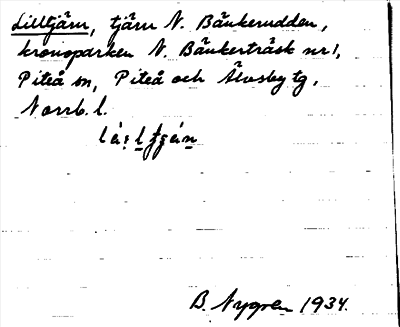 Lilltjärn, tjärn N. Bänkerudden,
kronoparken N. Bänkerträsk nr 1,
Piteå sn, Piteå och Älvsby tg,
Norrb. l.
B. Nygren 1934.